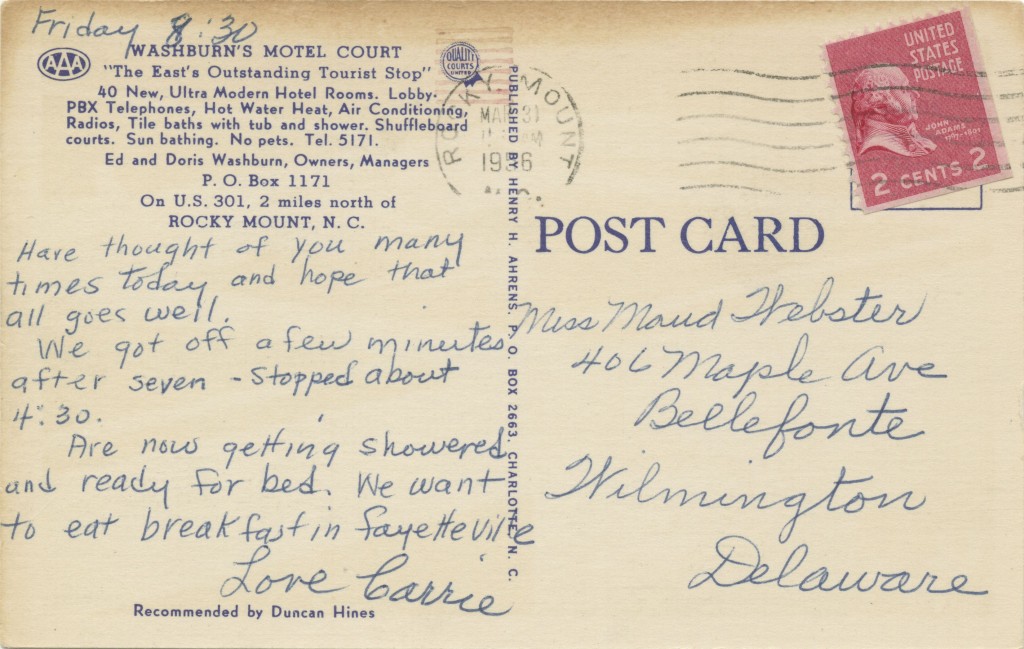 Friday 8:30
AAA
WASHBURN'S MOTEL COURT
"The East's Outstanding Tourist Stop"
40 New, Ultra Modern Hotel Rooms. Lobby.
PBX Telephones, Hot Water Heat, Air Conditioning,
Radios, Tile baths with tub and shower. Shuffleboard
courts. Sun bathing. No pets. Tel. 5171.
Ed and Doris Washburn, Owners, Managers
P. O. Box 1171
On U.S. 301, 2 miles north of
ROCKY MOUNT, N. C.
QUALITY
COURTS
UNITED
Have thought of you many
times today and hope that
all goes well.
We got off a few minutes
after seven - Stopped about
4:30.
Are now getting showered
and ready for bed. We want
to eat breakfast in Fayetteville
Love Carrie
Recommended by Duncan Hines
PUBLISHED BY HENRY H. AHRENS, P. O. BOX 2663, CHARLOTTE, N. C.
ROCKY MOUNT
MAR 31
1956
N.C.
UNITED
STATES
POSTAGE
JOHN
ADAMS
1797-1801
2 CENTS 2
POST CARD
Miss Maud Webster
406 Maple Ave
Bellefonte
Wilmington
Delaware